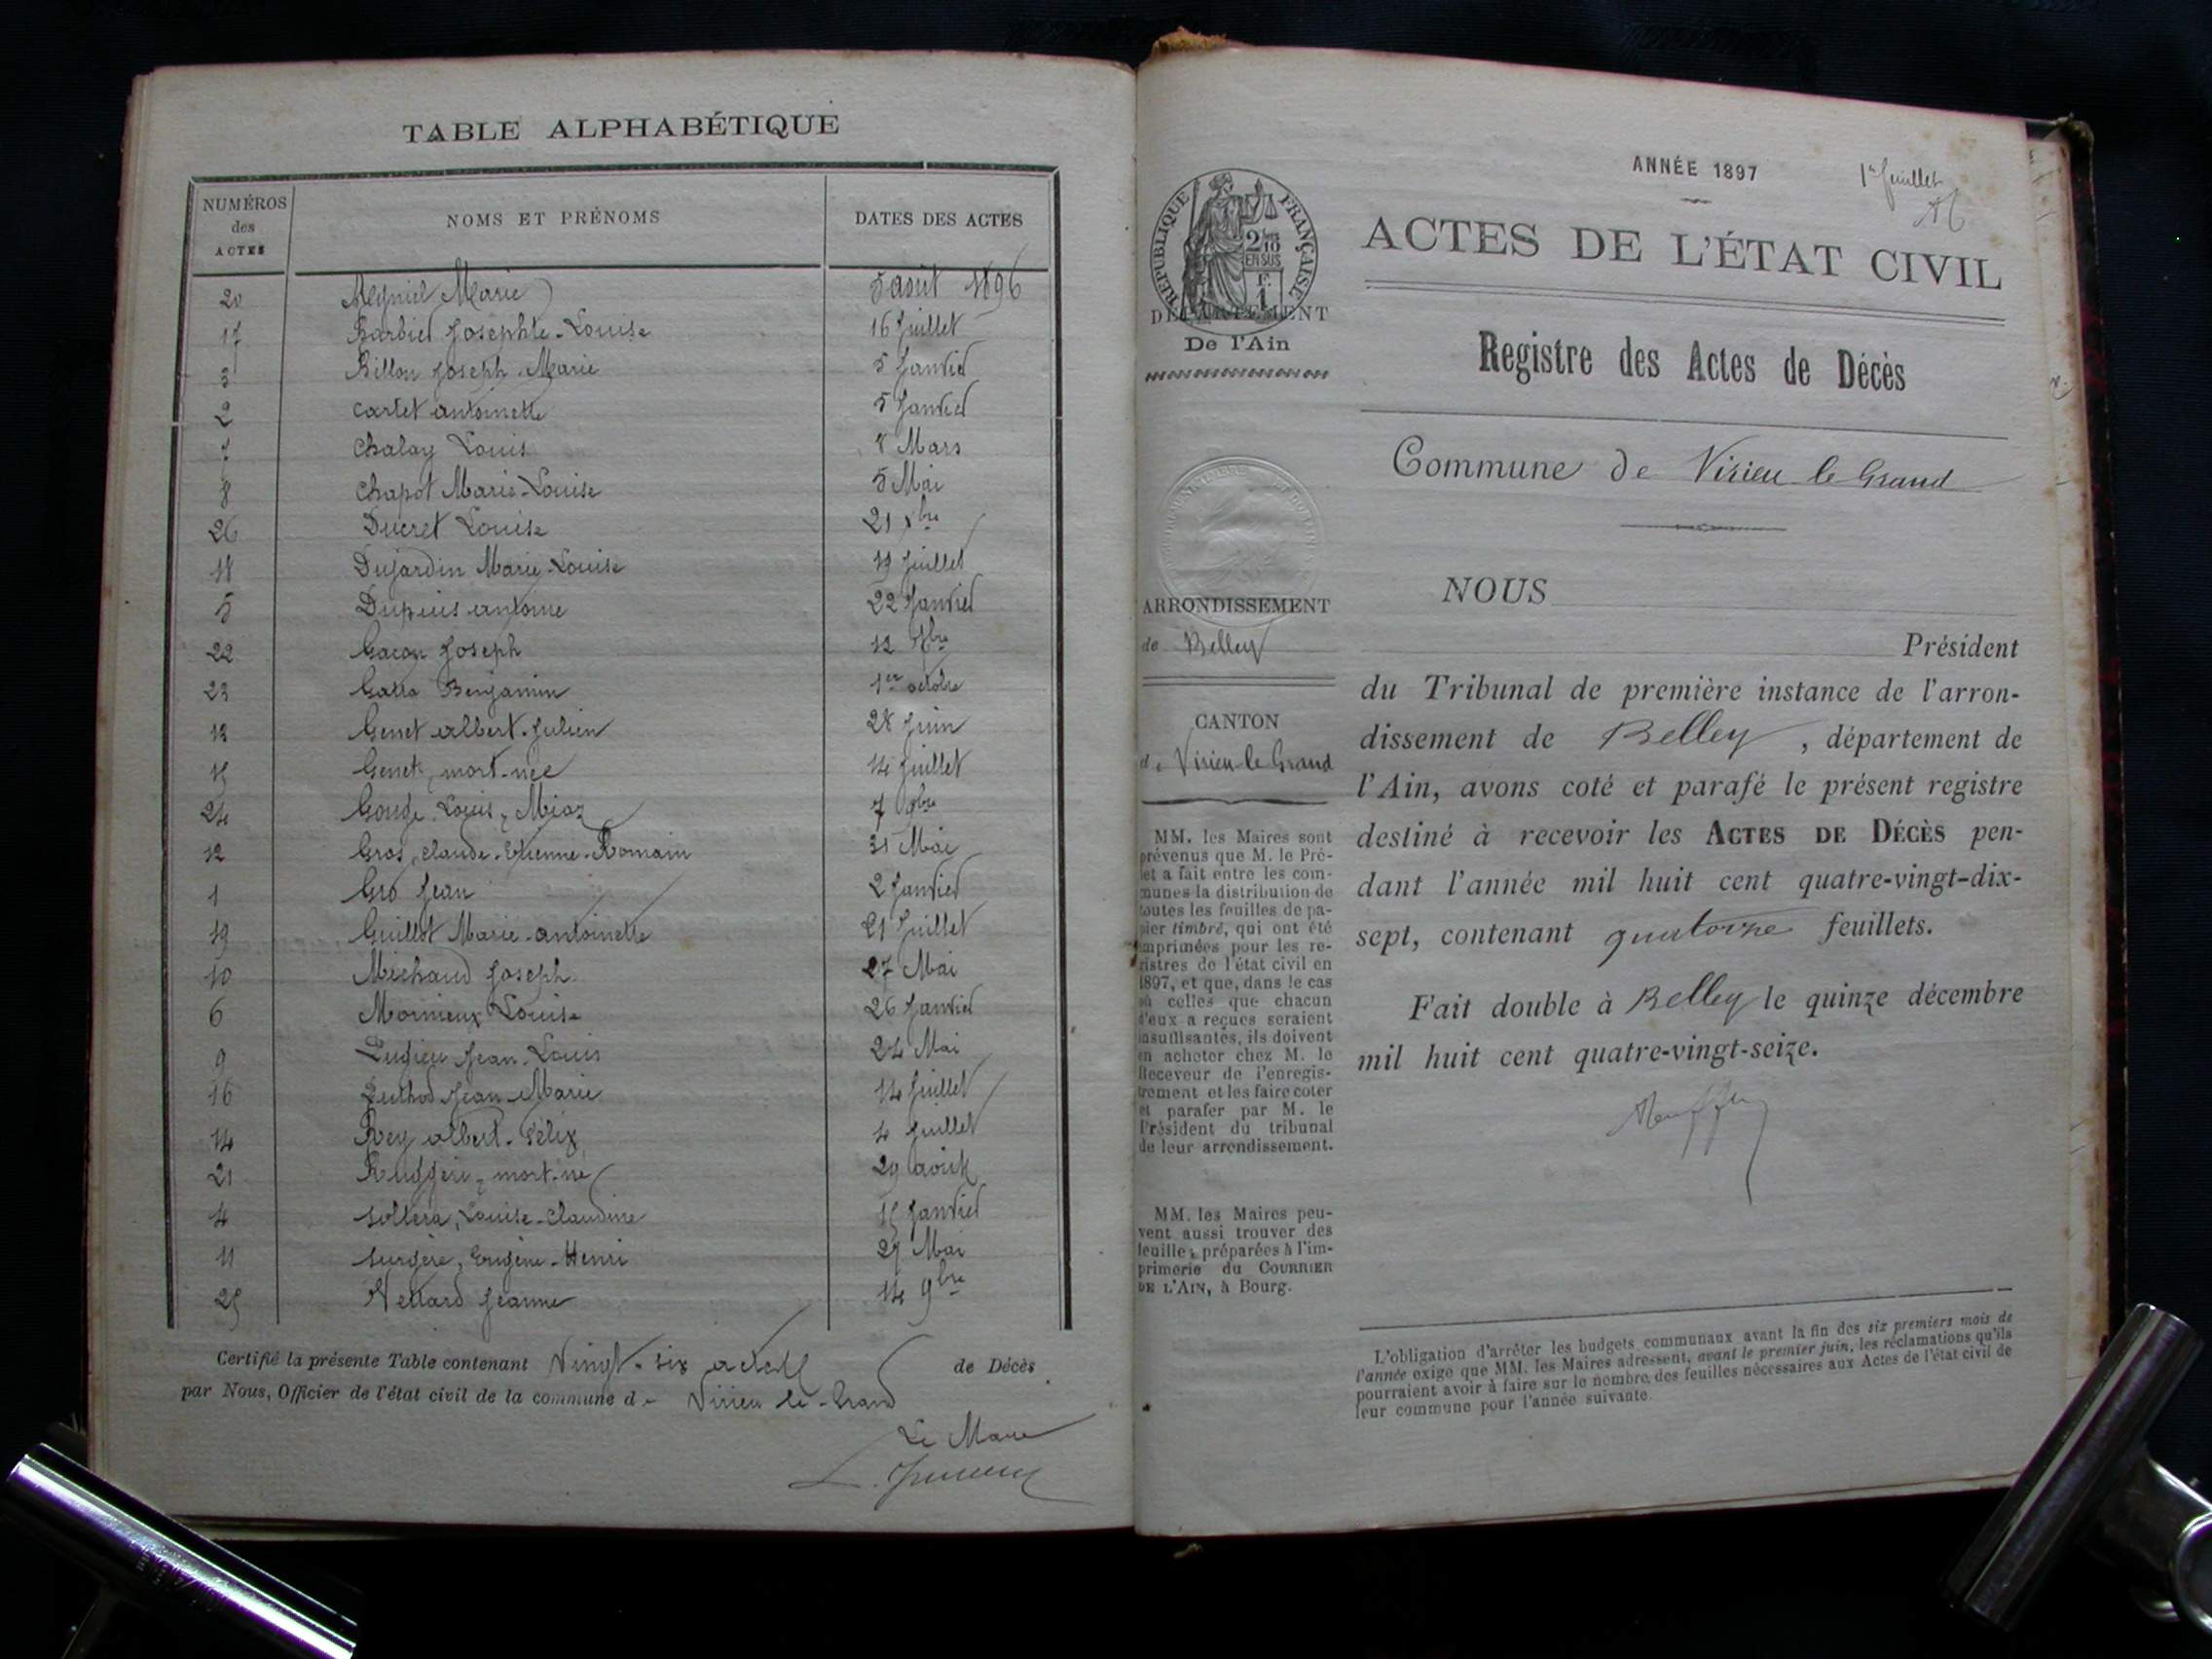 TABLE ALPHABÉTIQUE
NUMÉROS des ACTES NOMS ET PRÉNOMS DATES DES ACTES
20 Marie 5 août 1896
17 Barbier Josephte-Louise 16 Juillet
3 Billon Joseph-Marie 5 Janvier
2 Cartet antoinette 5 Janvier
7 Chalay Louis 8 Mars
8 Chapot Marie-Louise 5 Mai
26 Ducret Louise 21 xbre
18 Dujardin Marie-Louise 19 Juillet
5 Dupuis antoine 22 Janvier
22 Gacon Joseph 12 7bre
23 Benjamin 1er octobre
13 Genet albert-Julien 28 Juin
15 Genet, mort-née 14 Juillet
24 Gonge Louis, 7 9bre
12 Gros, claude-Etienne-Romain 31 Mai
1 Gro Jean 2 Janvier
19 Guillot Marie-antoinette 21 Juillet
10 Michaud Joseph 27 Mai
6 Louise 26 Janvier
9 Jean-Louis 24 Mai
16 Jean-Marie 14 Juillet
14 Rey albert-Félix 4 Juillet
21 Ruggeri, mort-né 29 août
4 Louise-Claudine 15 Janvier
11 Surgère, Eugène-Henri 27 Mai
25 Jeanne 14 9bre
Certifié la présente Table contenant Vingt-six actes de Décès
par Nous, Officier de l'état civil de la commune de Virieu-le-Grand
Le Maire
ANNÉE 1897 1er Juillet
ACTES DE L'ÉTAT CIVIL
RÉPUBLIQUE FRANÇAISE
2/10 EN SUS
F. 1
DÉPARTEMENT
De l'Ain
Registre des Actes de Décès
Commune de Virieu le Grand
NOUS
ARRONDISSEMENT
de Belley
Président
du Tribunal de première instance de l'arron-
dissement de Belley, département de
l'Ain, avons coté et parafé le présent registre
destiné à recevoir les ACTES DE DÉCÈS pen-
dant l'année mil huit cent quatre-vingt-dix-
sept, contenant quatorze feuillets.
Fait double à Belley le quinze décembre
mil huit cent quatre-vingt-seize.
CANTON
de Virieu-le-Grand
MM. les Maires sont
prévenus que M. le Pré-
fet a fait entre les com-
munes la distribution de
toutes les feuilles de pa-
pier timbré, qui ont été
imprimées pour les re-
gistres de l'état civil en
1897, et que, dans le cas
où celles que chacun
d'eux a reçues seraient
insuffisantes, ils doivent
en acheter chez M. le
Receveur de l'enregis-
trement et les faire coter
et parafer par M. le
Président du tribunal
de leur arrondissement.
MM. les Maires peu-
vent aussi trouver des
feuilles préparées à l'im-
primerie du COURRIER
DE L'AIN, à Bourg.
L'obligation d'arrêter les budgets communaux avant la fin des six premiers mois de
l'année exige que MM. les Maires adressent, avant le premier juin, les réclamations qu'ils
pourraient avoir à faire sur le nombre des feuilles nécessaires aux Actes de l'état civil de
leur commune pour l'année suivante.